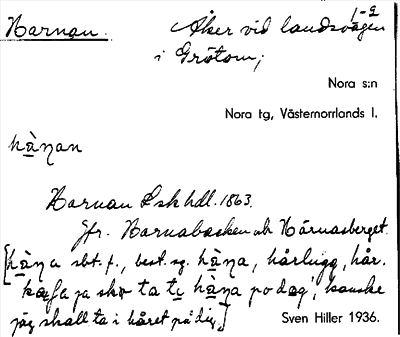 Harnan. Åker vid landsvägen 1-2
i Grötom;
Nora s:n
Nora tg, Västernorrlands l.
hạ̀nan
Harnan Lskhdl. 1863.
Jfr. Harnabacken och Härnasberget.
[hạ̀na sbt. f., best. sg. hạ̀na, hårlugg, hår.
ja ska ta ti hạ̀na po dag, kanske
jag skall ta i håret på dig.]
Sven Hiller 1936.